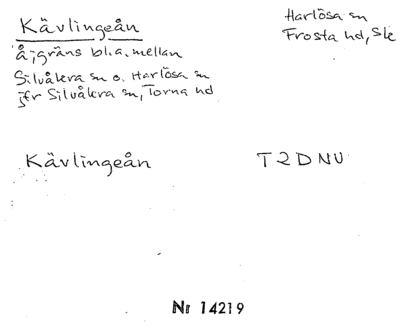 Kävlingeån
Harlösa sn
Frosta hd, Sk
å; gräns bl.a. mellan
Silvåkra sn o. Harlösa sn
jfr Silvåkra sn, Torna hd
Kävlingeån
T2DNU
Nr 14219